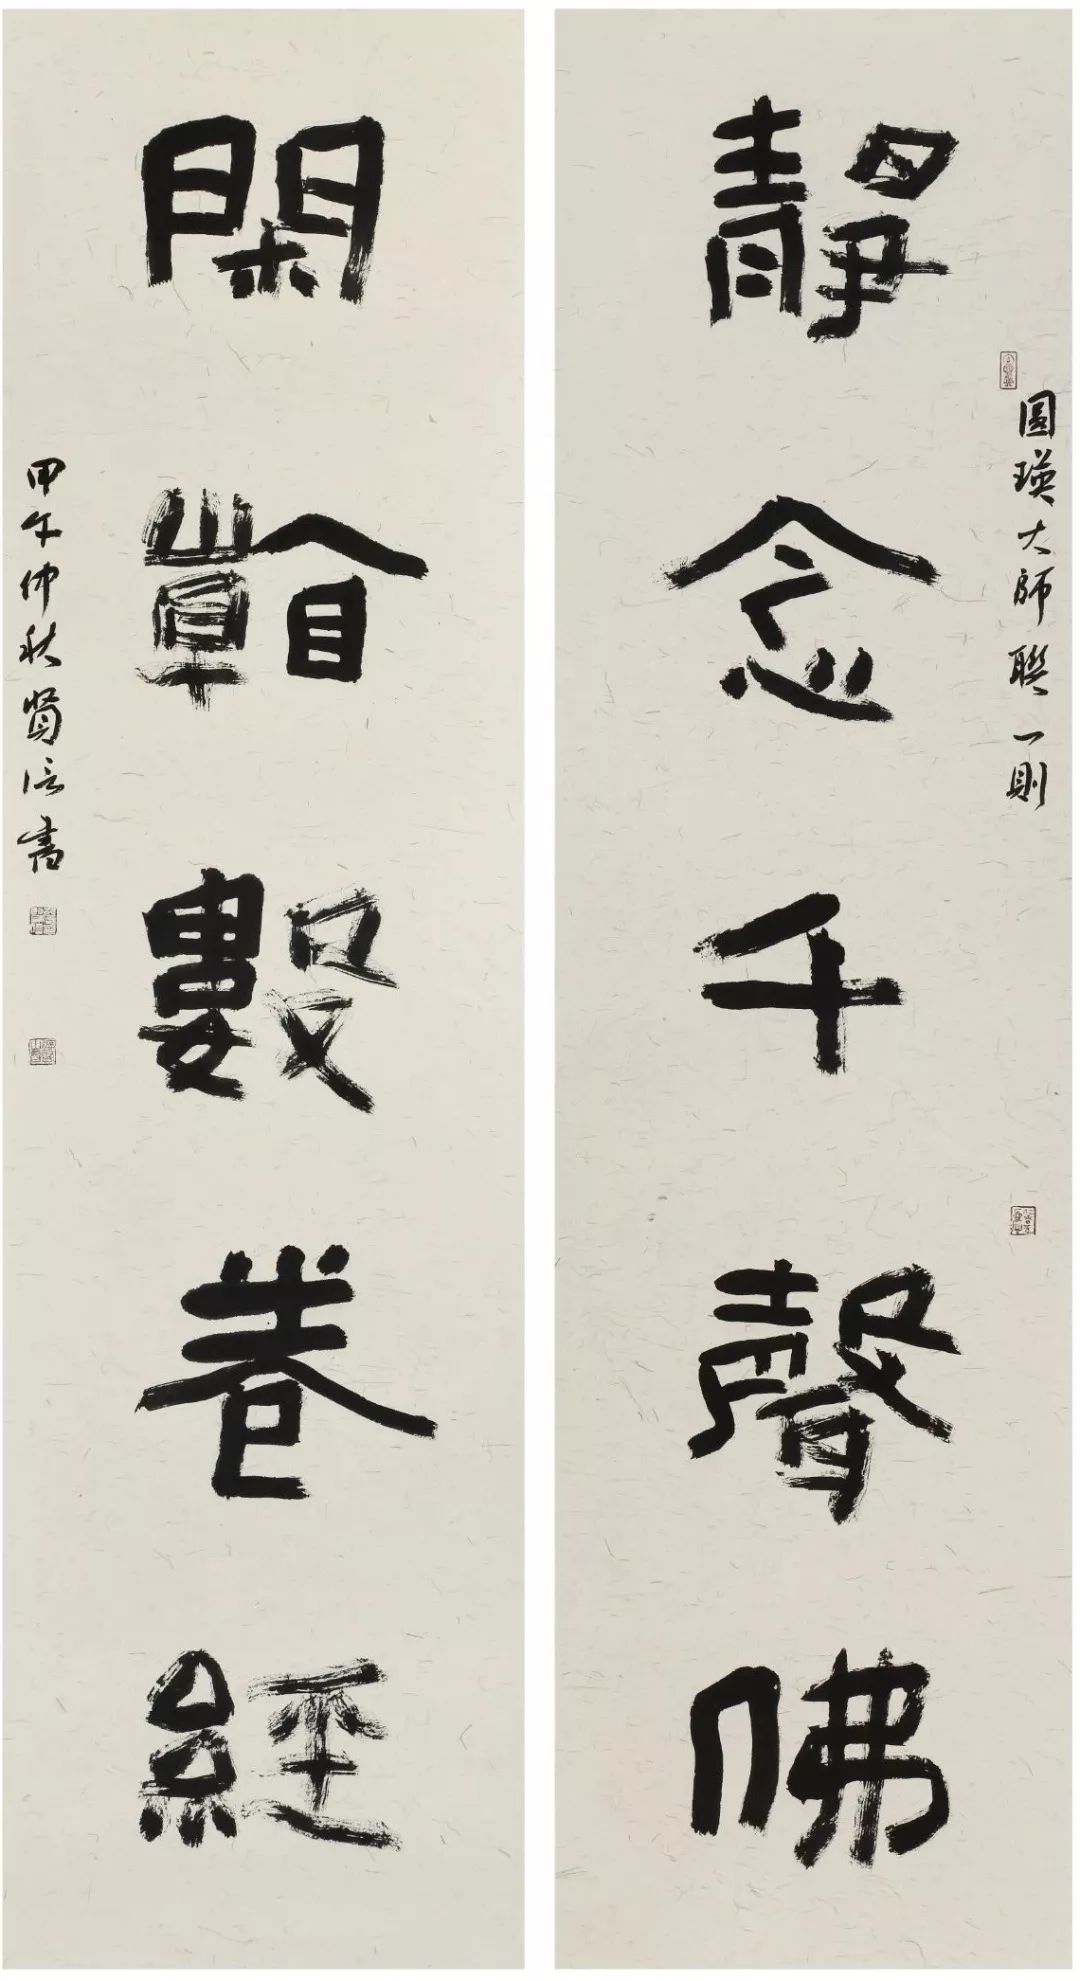 圓瑛大師聯一則
靜念千聲佛
閑看數卷經
甲午仲秋賢書